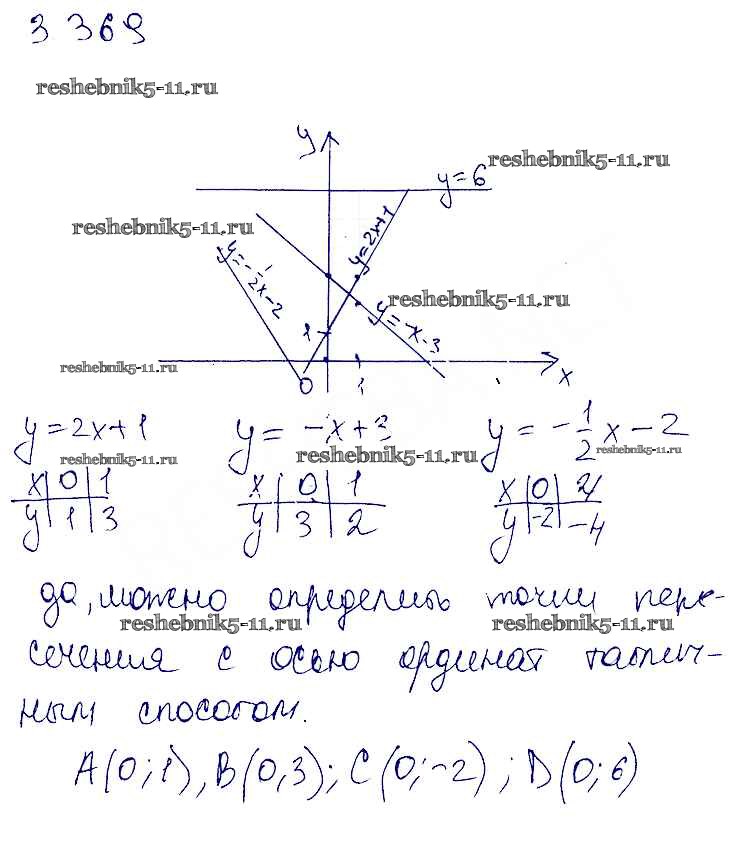 3 369
reshebnik5-11.ru
y
reshebnik5-11.ru
y=6
reshebnik5-11.ru
y=2x+1
y=-1/2x-2
reshebnik5-11.ru
y=-x-3
1
reshebnik5-11.ru
0
1
x
y=2x+1 y= -x+3 y= -1/2x-2
reshebnik5-11.ru reshebnik5-11.ru reshebnik5-11.ru
x 0 1 x 0 1 x 0 4
y 1 3 y 3 2 y -2 -4
да, можно определить точки пере-
reshebnik5-11.ru reshebnik5-11.ru
сечения с осью ординат
ным способом.
A(0;1), B(0,3); C(0;-2); D(0;6)